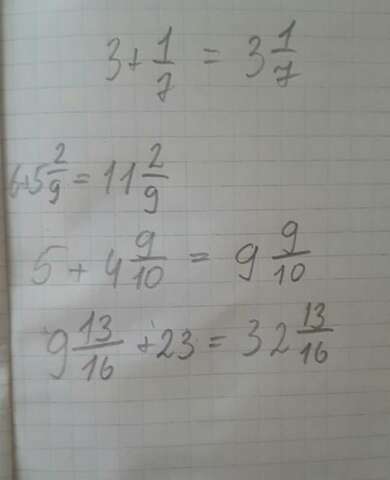 3 + 1/7 = 3 1/7
6+5 2/9 = 11 2/9
5 + 4 9/10 = 9 9/10
9 13/16 + 23 = 32 13/16